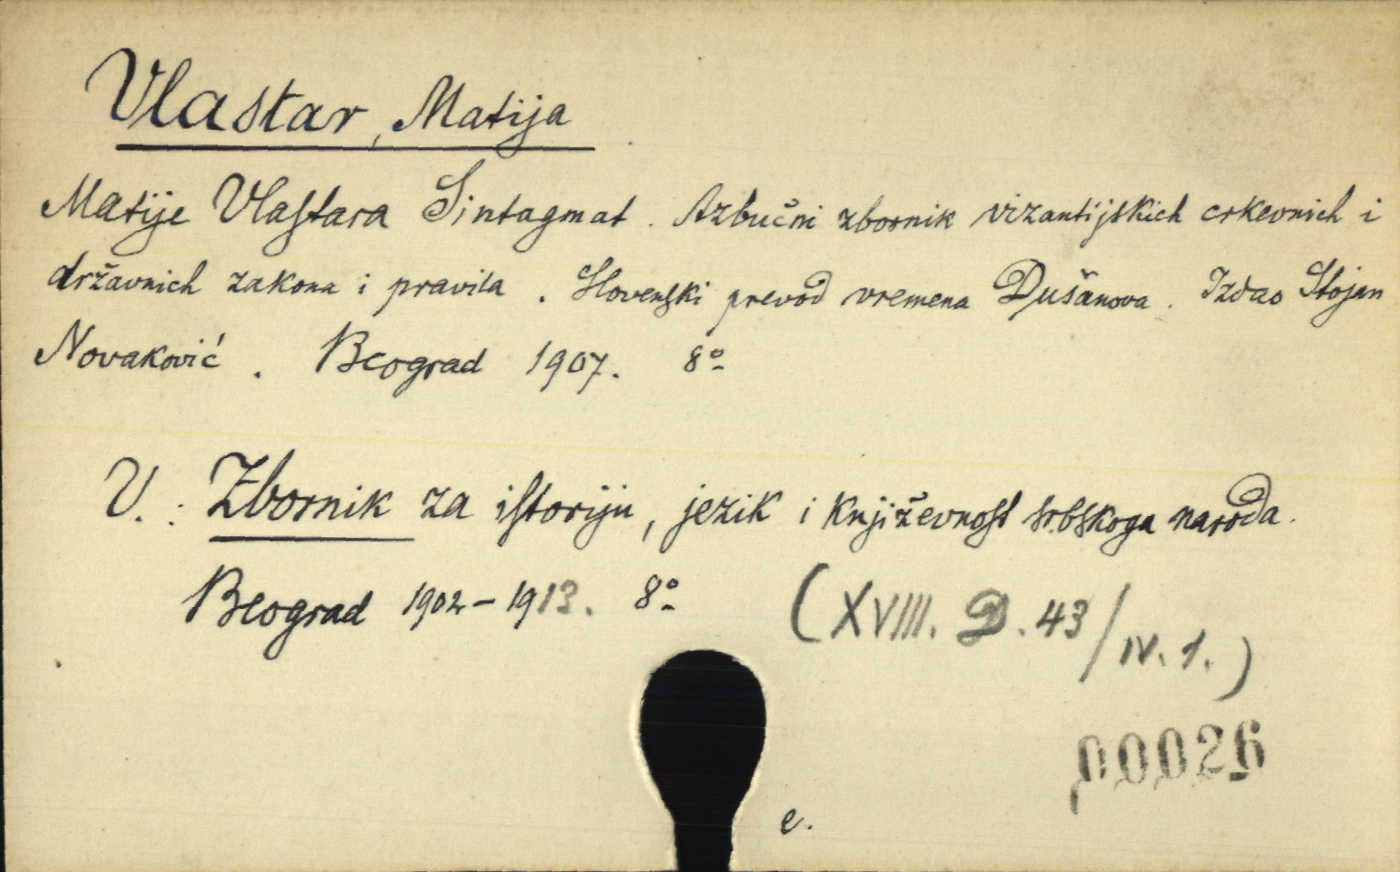 Vlastar, Matija
Matije Vlastara Sintagmat. Azbučni zbornik vizantijskich crkevnich i
državnich zakona i pravila. Slovenski prevod vremena Dušanova. Izdao Stojan
Novaković. Beograd 1907. 8°
U.: Zbornik za istoriju, jezik i književnost srbskoga naroda.
Beograd 1902-1913. 8°
(XVIII. D. 43/IV. 1.)
00026
e.